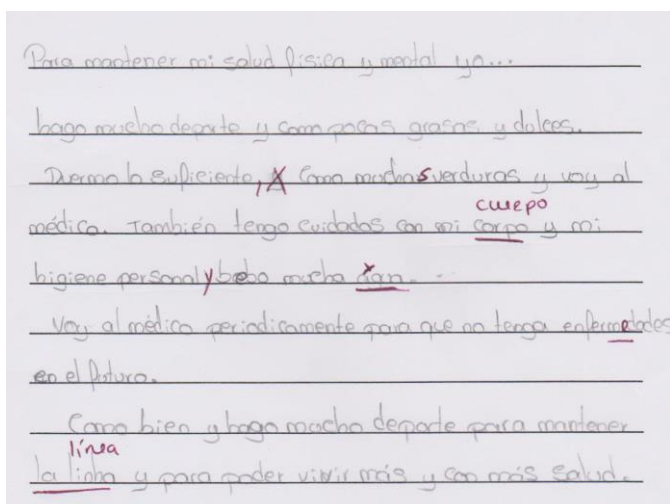 Para mantener mi salud física y mental yo...
hago mucho deporte y como pocas grasas y dulces.
Duermo lo suficiente, como muchas verduras y voy al
cuerpo
médico. También tengo cuidados con mi corpo y mi
higiene personal y bebo mucha
Voy al médico periodicamente para que no tenga enfermedades
en el futuro.
Como bien y hago mucho deporte para mantener
línea
la linha y para poder vivir más y con más salud.